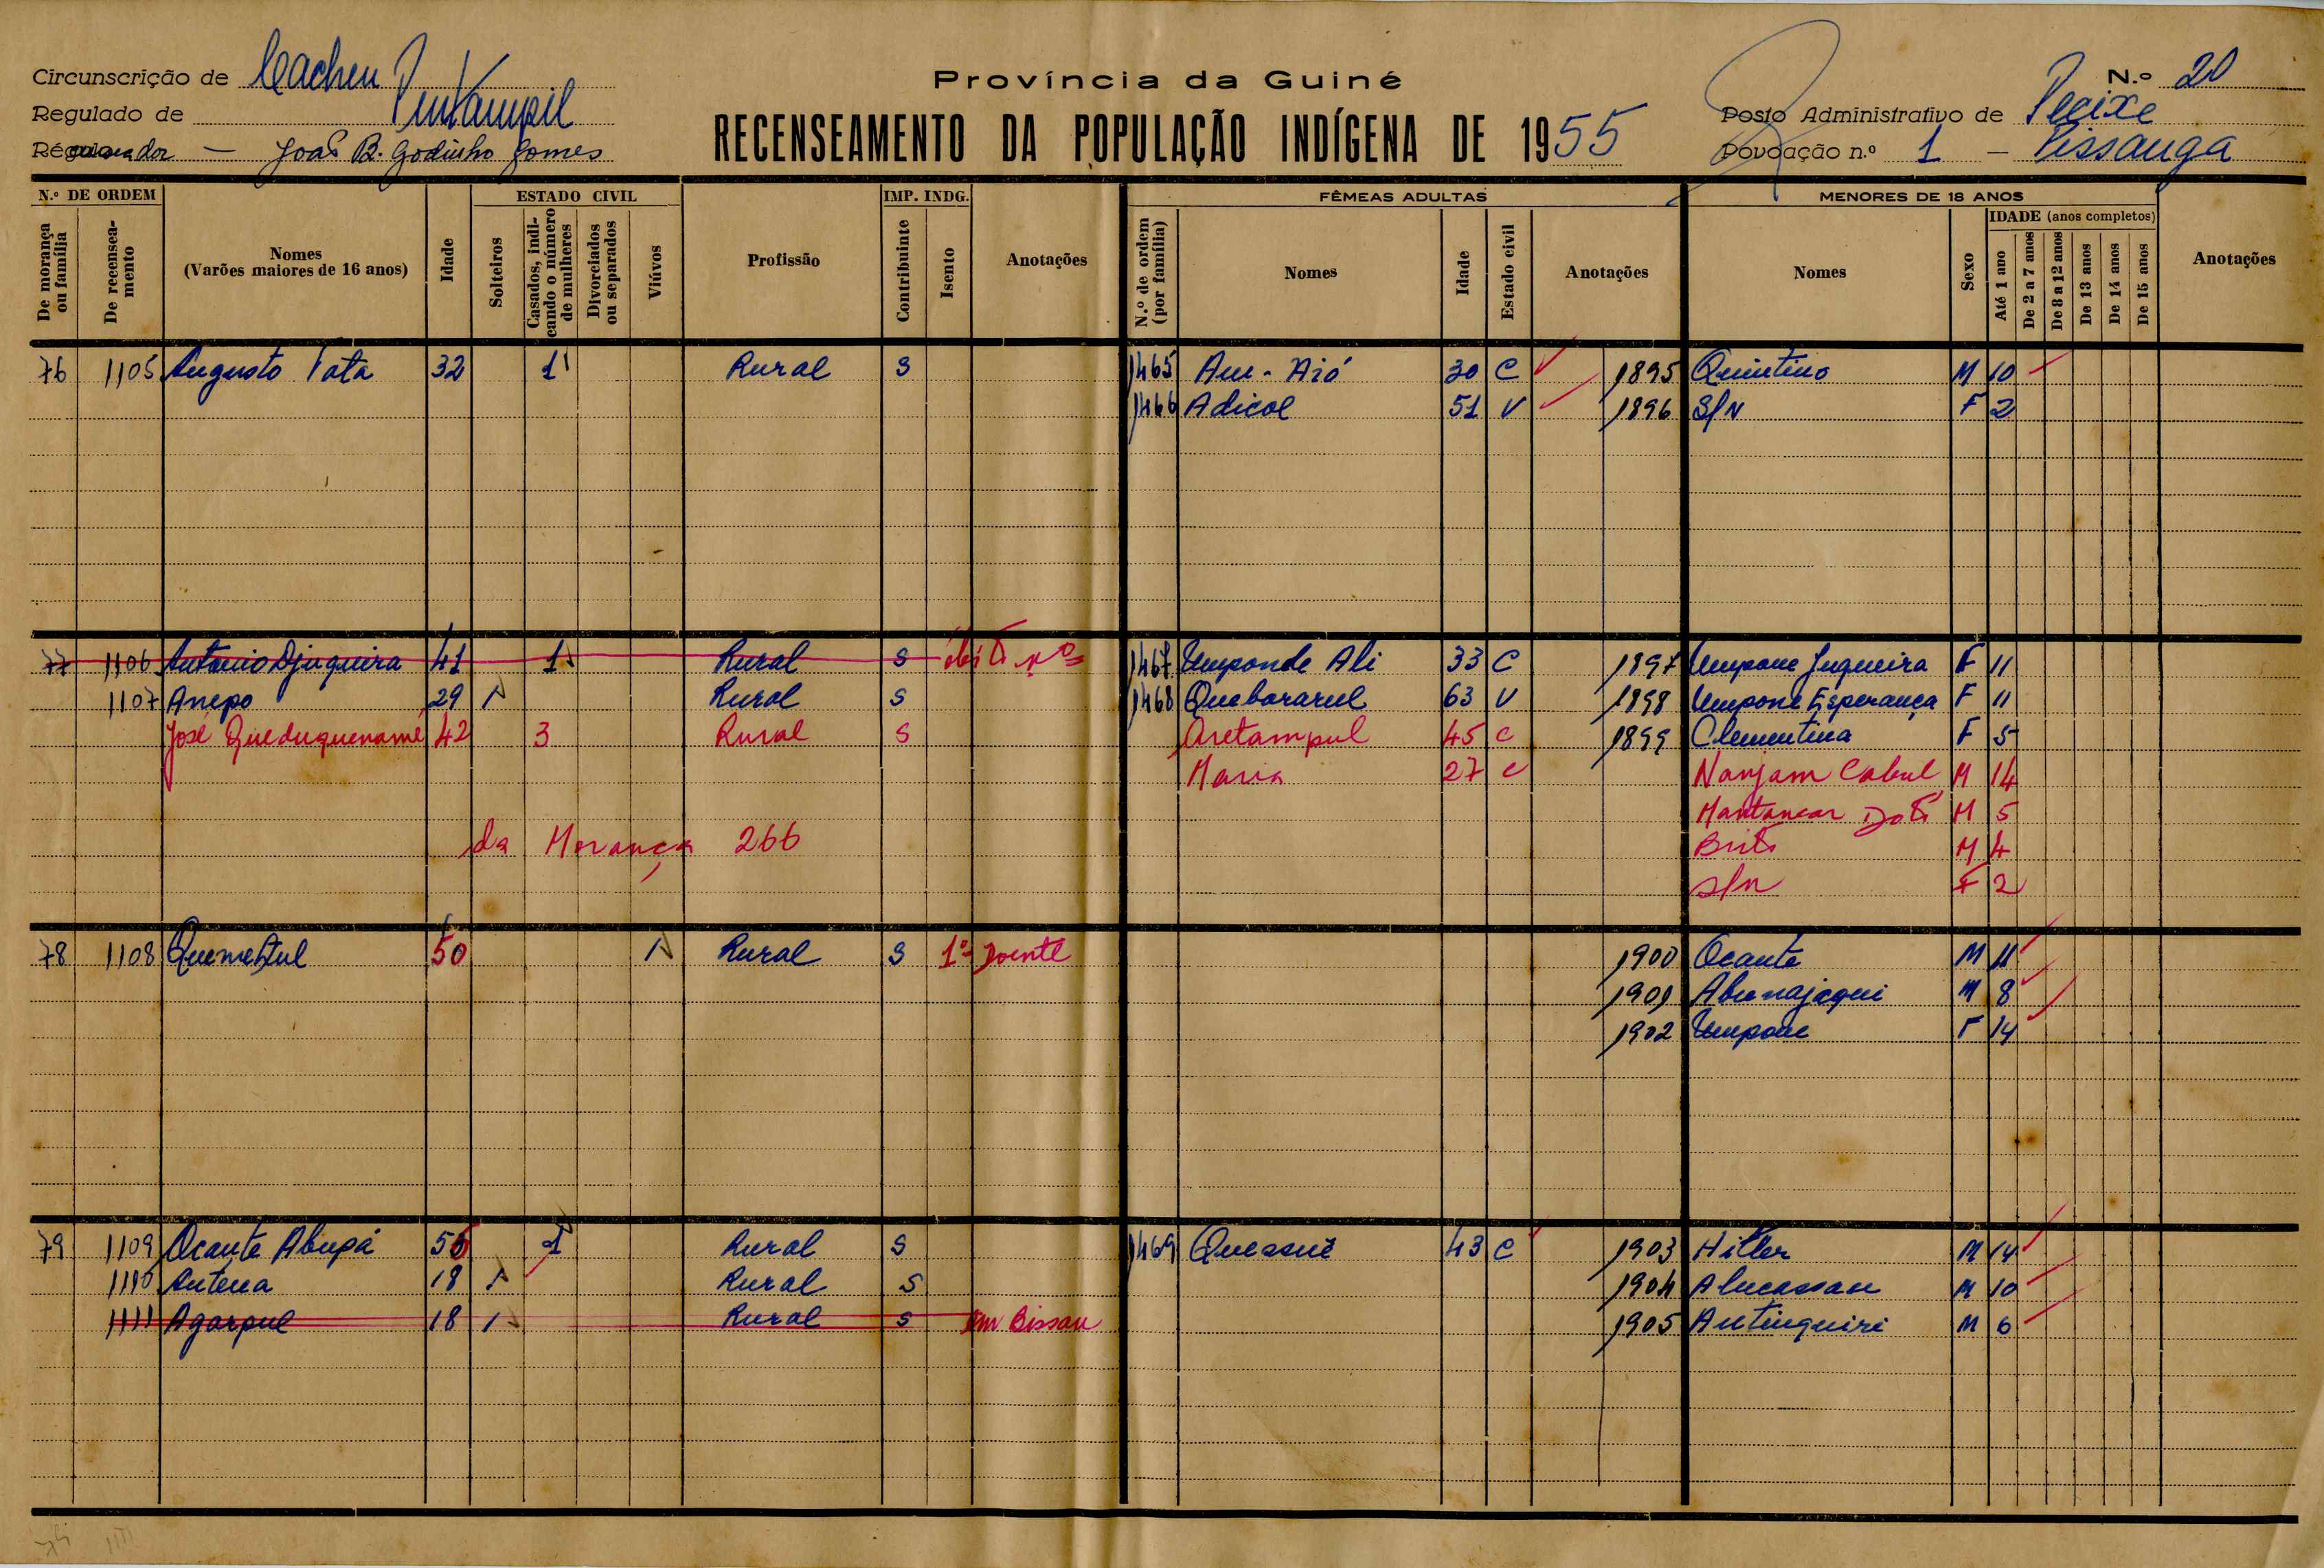 Circunscrição de Cacheu
Regulado de Pintampil
Recenseador - João B. Godinho Gomes
Província da Guiné
RECENSEAMENTO DA POPULAÇÃO INDÍGENA DE 1955
N.º 20
Posto Administrativo de Pecixe
Povoação n.º 1 - Pissanga
N.º DE ORDEM ESTADO CIVIL IMP. INDG. FÊMEAS ADULTAS MENORES DE 18 ANOS
De morança ou família De recenseamento Nomes (Varões maiores de 16 anos) Idade Solteiros Casados, indicando o número de mulheres Divorciados ou separados Viúvos Profissão Contribuinte Isento Anotações N.º de ordem (por família) Nomes Idade Estado civil Anotações Nomes Sexo IDADE (anos completos) Até 1 ano De 2 a 7 anos De 8 a 12 anos De 13 anos De 14 anos De 15 anos Anotações
76 1105 Augusto Tata 32 1 Rural S 1465 Am-Aió 30 C 1895 Quintino M 10
1466 Adicol 51 V 1896 S/N F 2
77 1106 Antonio Djuqueira 41 1 Rural S 1467 Umponde Ali 33 C 1897 Umpone Juqueira F 11
1107 Anepo 29 1 Rural S 1468 Quebararul 63 V 1898 Umpone Esperança F 11
José 42 3 Rural S Aretampul 45 C 1899 Clementina F 5
Maria 27 C Nanjam Cabul M 14
M 5
da Morança 266 Brito M 4
S/n F 2
78 1108 Quemetul 50 1 Rural S 1º Doente 1900 Ocante M 11
1901 Abunajaqui M 8
1902 Umpone F 14
79 1109 Ocante Abupá 55 1 Rural S 1469 Quessuè 43 C 1903 Hitler M 14
1110 Antena 18 1 Rural S 1904 Alucassau M 10
1111 Agarpul 18 1 Rural S em Bissau 1905 Antinquiri M 6